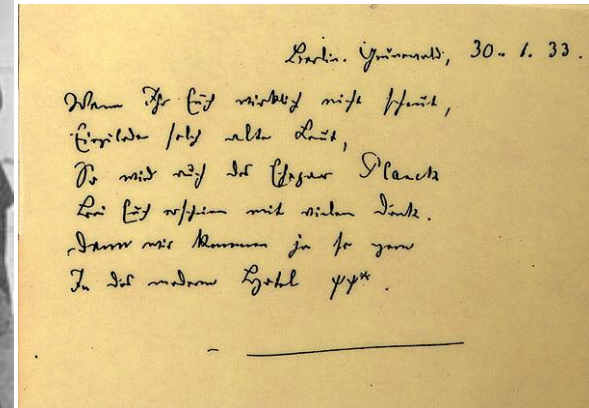 Berlin-Grunewald, 30. 1. 33.
Wenn Ihr Euch wirklich nicht scheut,
Einzuladen solch alte Leut,
So wird auch das Ehepaar Planck
Bei Euch erscheinen mit vielem Dank.
Denn wir kommen ja so gern
In das moderne Hotel ψψ*.